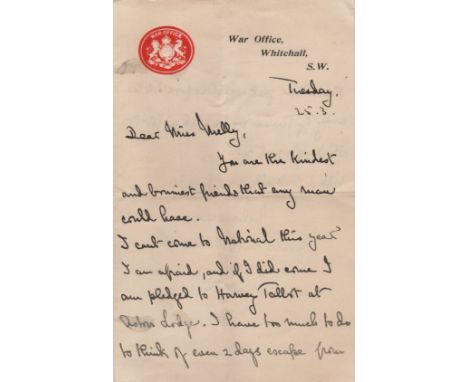 WAR OFFICE
War Office,
Whitehall,
S.W.
Tuesday.
25.3.
Dear Miss Melly,
You are the kindest
and bonniest friends that any man
could have.
I can't come to National this year
I am afraid, and if I did come I
am pledged to Harvey Talbot at
Aston Lodge. I have too much to do
to think of even 2 days escape from